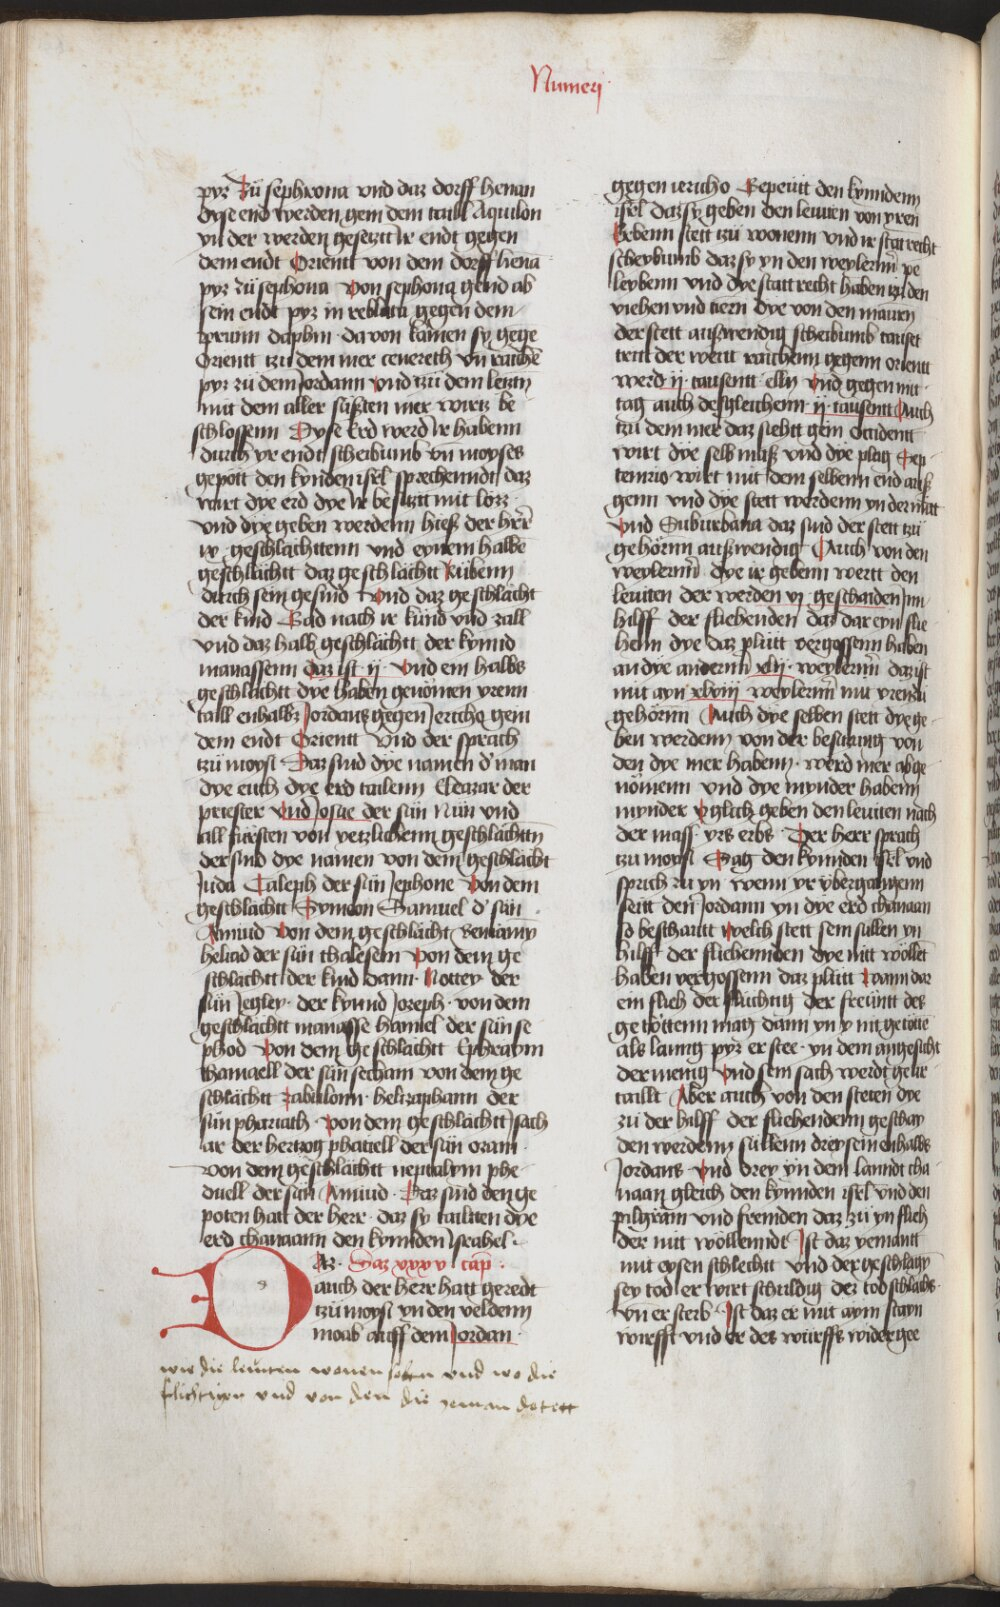 Numeri
pyz Zu sephrona vnd daz dorff henan
dyse end werden gein dem taill Aquilon
vn der werden gesetzt ir endt gegen
dem endt Orientt von dem dorff henā
pyz zū sephona Von sephona gend ab
sein endt pyz in reblata gegen dem
prunn daphin · da von kamen sy gege
Orientt tzu dem mer cenereth vn raichē
pyz zü dem Jordann vnd tzü dem letztn
mit dem aller süßten mer wirtz be
schlossenn Dyse Erd werd ir habenn
durch yr endt scheibumb vn moyses
gepott den kynden isrl sprechenndt daz
wirt dye erd dye ir besitzt mit lozz ·
vnd dye geben werdenn hieß der hēr
ix · geschlächttenn vnd eynem halbē
geschlächtt daz geschlächtt Rübenn
durch sein gesind · Vnd daz geschlächt
der kind Gad nach ir künd vnd zall
vnd daz halb geschlächtt der kynnd
manassenn daz ist ·ij· Vnd ein halbs
geschlächtt dye haben genömen yrenn
taill enhalbz Jordans gegen Jericho gein
dem endt Orientt Vnd der sprach
tzü moysi · Daz sind dye namen d' man
dye euch dye erd tailenn Eleazar der
priester vnd Josue der sün Nün vnd
all fürsten von yetzlichenn geschlächtn
der sind dye namen von dem geschlächt
Juda Caleph der sün Jephone Von dem
geschlächtt Symeon Samuel d' sün
Amiud Von dem geschlächt Beniamyn
heliad der sün thaleseln Von dem ge
schlächtt der kind dann · Nottey der
sün Jegley · der kynnd Jozeph · von dem
geschlächtt manasse hamel der sün se
phod Von dem geschlächtt Ephraym
thamaell der sün sectham von dem ge
schlächtt Zabulonn · helizaphann der
sün pharnath · Von dem geschlächtt Jsach
ar der hertzog phatiell der sün ozani ·
Von dem geschlächtt neptalym phe
duell der sün Amiud · Daz sind den ge
poten hatt der herr · daz sy tailtten dye
erd chanaann den kynnden Jsrahel ·
DAz · Daz xxxv cap̄ ·
auch der herr hatt geredt
tzü moysi yn den veldenn
moab auff dem Jordan ·
wie die leuiten wonen solten vnd wo die
flichtigen vnd von den die yeman detett
gegen iericho Gepeütt den kynndenn
isrl daz sy geben den leuiten von yren
Erbenn stett tzü wonenn vnd ir stat recht
scheybumb daz sy yn den weylernn pe
leybenn vnd dye statt recht haben tzu den
viehen vnd tiern dye von den mauren
der stett außwendig scheibumb tauset
tritt der weitt raichenn gegenn orientt
werd ·ij· tausentt elln Vnd gegen mit
tag auch desgleichenn ·ij· tausentt Auch
tzü dem mer daz siehtt gein Occidentt
wirt dye selb maß vnd dye plag Sep
tentrio wirt mit dem selbenn end auß
genn vnd dye stett werdenn yn der mitt
Vnd Suburbana daz sind der stett tzü
gehörnn außwendig Auch von den
weylernn dye ir gebenn wertt den
leuiten der werden vi geschaiden in
hilff der fliehenden daz dar eyn flie
henn dye daz plütt vergossenn haben
an dye andernn xlij weylernn daz ist
mit ayn xlviij weylernn mit yren zü
gehörnn Auch dye selben stett dye ge
ben werdenn von der besitzung von
den dye mer habenn · werd mer abge
nömenn vnd dye mynder habenn
mynder yglich geben den leuiten nach
der mass · yrs erbs · Der herr sprach
tzu moysi Sag den kynnden isrl vnd
sprich zu yn · wenn yr vbergangenn
seitt den Jordann yn dye erd chanaan
so beschaitt welch stett sein süllen yn
hilff der fliehennden dye nitt wöllet
haben vergossenn daz plütt Wann dar
ein flieh der flüchtig der freüntt des
getöttenn mag dann yn y nit getöttē
als lanng pyz er stee · yn dem angesicht
der menig Vnd sein sach werdt geur
taillt Aber auch von den steten dye
zü der hilff der fliehendenn geschay
den werdenn süllenn drey sein enhalbs
Jordans Vnd drey yn dem lanndt cha
naan gleich den kynnden isrl vnd den
pilgräm vnd fremden daz zü yn flieh
der nitt wöllenndt Jst daz yemantt
mit eysen schlechtt vnd der geschlagn
sey tod er wirt schuldig dez todschlachs ·
vn er sterb · Jst daz er mit aym stayn
wirfft vnd er des würffs widergee